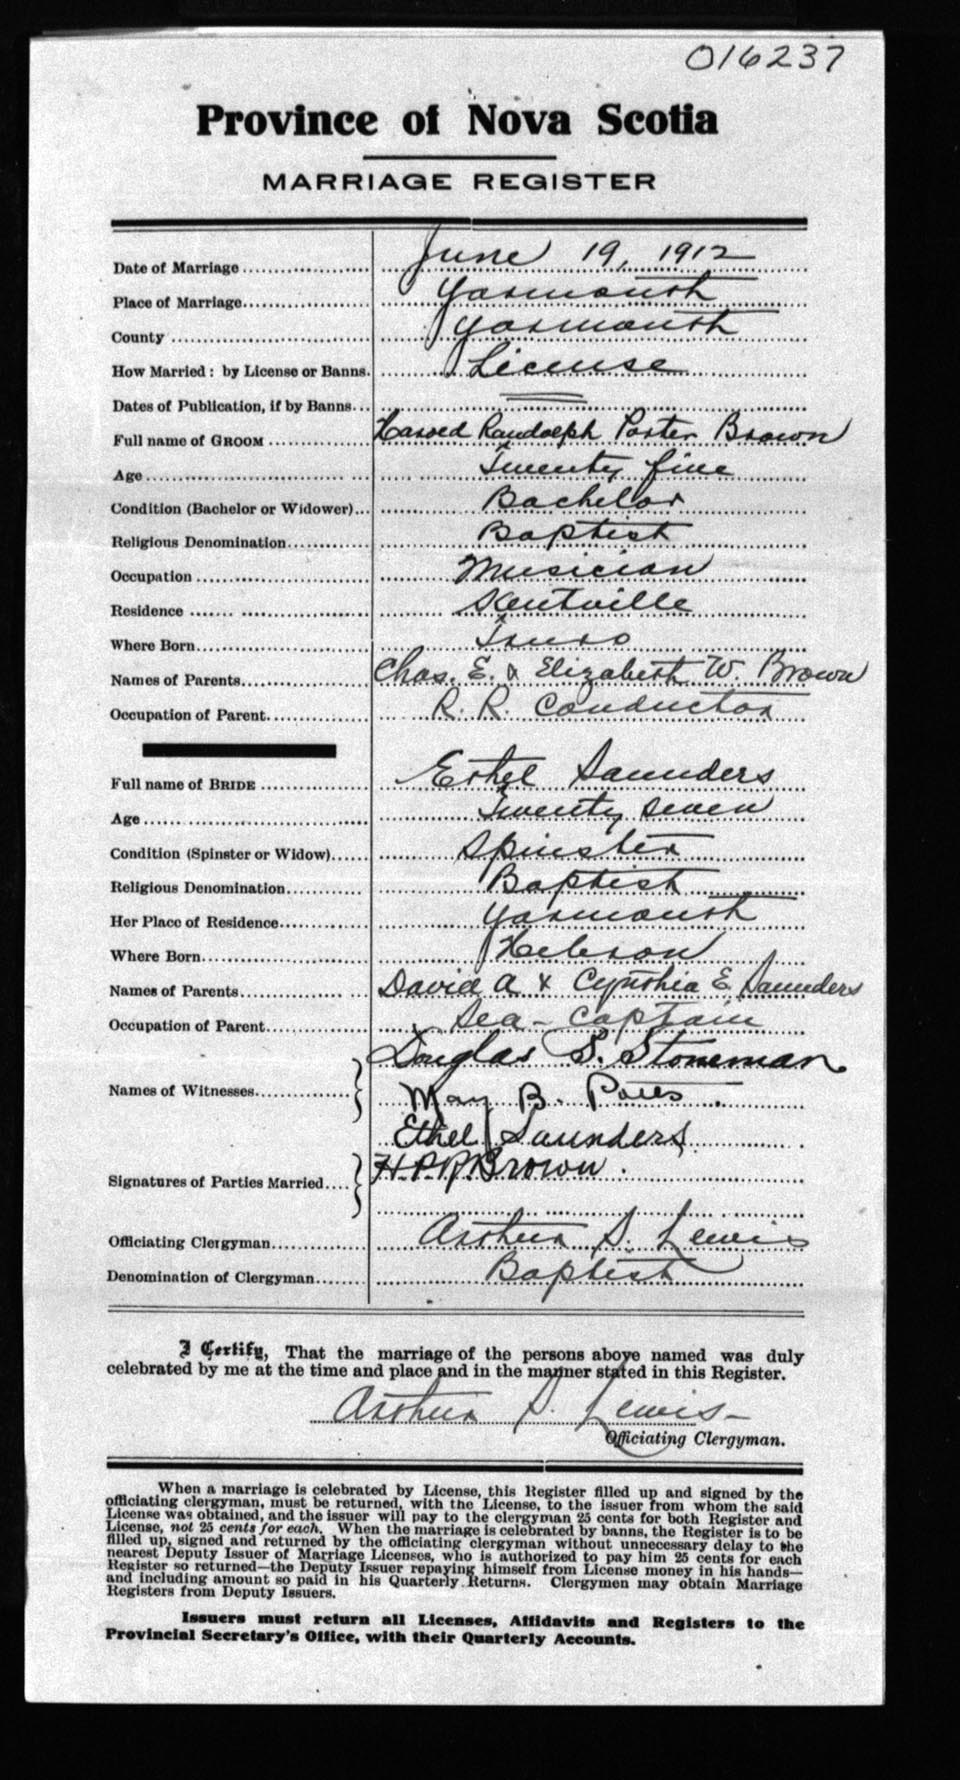 016237
Province of Nova Scotia
MARRIAGE REGISTER
Date of Marriage June 19, 1912
Place of Marriage Yarmouth
County Yarmouth
How Married: by License or Banns. License
Dates of Publication, if by Banns
Full name of GROOM Harold Randolph Porter Brown
Age Twenty five
Condition (Bachelor or Widower) Bachelor
Religious Denomination Baptist
Occupation Musician
Residence Kentville
Where Born Truro
Names of Parents Chas. E. & Elizabeth W. Brown
Occupation of Parent R. R. Conductor
Full name of BRIDE Ethel Saunders
Age Twenty seven
Condition (Spinster or Widow) Spinster
Religious Denomination Baptist
Her Place of Residence Yarmouth
Where Born Hebron
Names of Parents David A & Cynthia E. Saunders
Occupation of Parent Sea-Captain
Douglas S. Stoneman
Names of Witnesses May B.
Ethel Saunders
Signatures of Parties Married H.P.R. Brown.
Officiating Clergyman Arthur S. Lewis
Denomination of Clergyman Baptist
I Certify, That the marriage of the persons above named was duly
celebrated by me at the time and place and in the manner stated in this Register.
Arthur S. Lewis
Officiating Clergyman.
When a marriage is celebrated by License, this Register filled up and signed by the
officiating clergyman, must be returned, with the License, to the issuer from whom the said
License was obtained, and the issuer will pay to the clergyman 25 cents for both Register and
License, not 25 cents for each. When the marriage is celebrated by banns, the Register is to be
filled up, signed and returned by the officiating clergyman without unnecessary delay to the
nearest Deputy Issuer of Marriage Licenses, who is authorized to pay him 25 cents for each
Register so returned—the Deputy Issuer repaying himself from License money in his hands—
and including amount so paid in his Quarterly Returns. Clergymen may obtain Marriage
Registers from Deputy Issuers.
Issuers must return all Licenses, Affidavits and Registers to the
Provincial Secretary's Office, with their Quarterly Accounts.